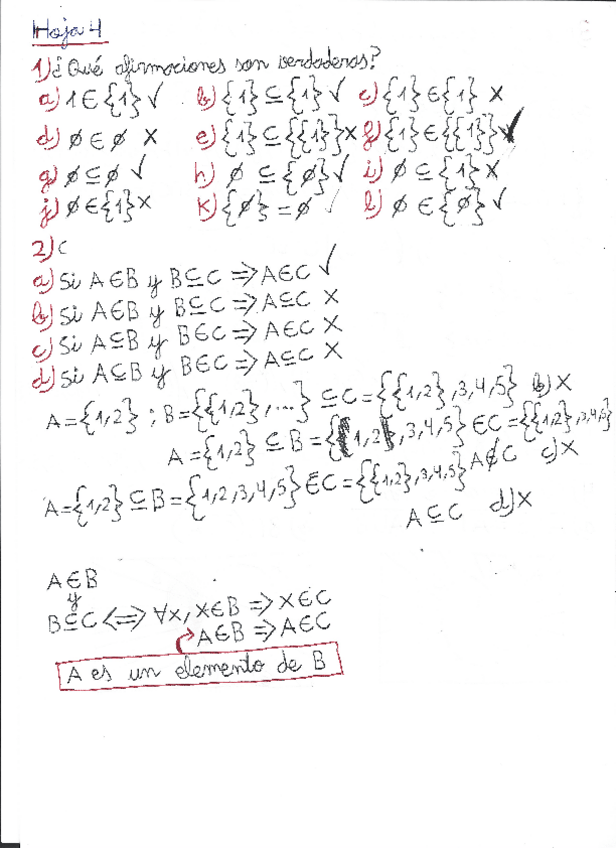 Hoja 4
1) ¿Qué afirmaciones son verdaderas?
a) 1 ∈ {1} ✓ b) {1} ⊆ {1} ✓ c) {1} ∈ {1} X
d) ∅ ∈ ∅ X e) {1} ⊆ {{1}} X f) {1} ∈ {{1}} ✓
g) ∅ ⊆ ∅ ✓ h) ∅ ⊆ {∅} ✓ i) ∅ ⊆ {1} X
j) ∅ ∈ {1} X k) {∅} = ∅ ✓ l) ∅ ∈ {∅} ✓
2) C
a) Si A ∈ B y B ⊆ C => A ∈ C ✓
b) Si A ∈ B y B ⊆ C => A ⊆ C X
c) Si A ⊆ B y B ∈ C => A ∈ C X
d) Si A ⊆ B y B ∈ C => A ⊆ C X
A = {1,2} ; B = {{1,2}, ...} ⊆ C = {{1,2}, 3,4,5} b) X
A = {1,2} ⊆ B = {1,2, 3,4,5} ∈ C = {{1,2}, 3,4,5}
A ∉ C c) X
A = {1,2} ⊆ B = {1,2,3,4,5} ∈ C = {{1,2}, 3,4,5}
A ⊆ C d) X
A ∈ B
y
B ⊆ C <=> ∀x, x ∈ B => x ∈ C
A ∈ B => A ∈ C
A es un elemento de B